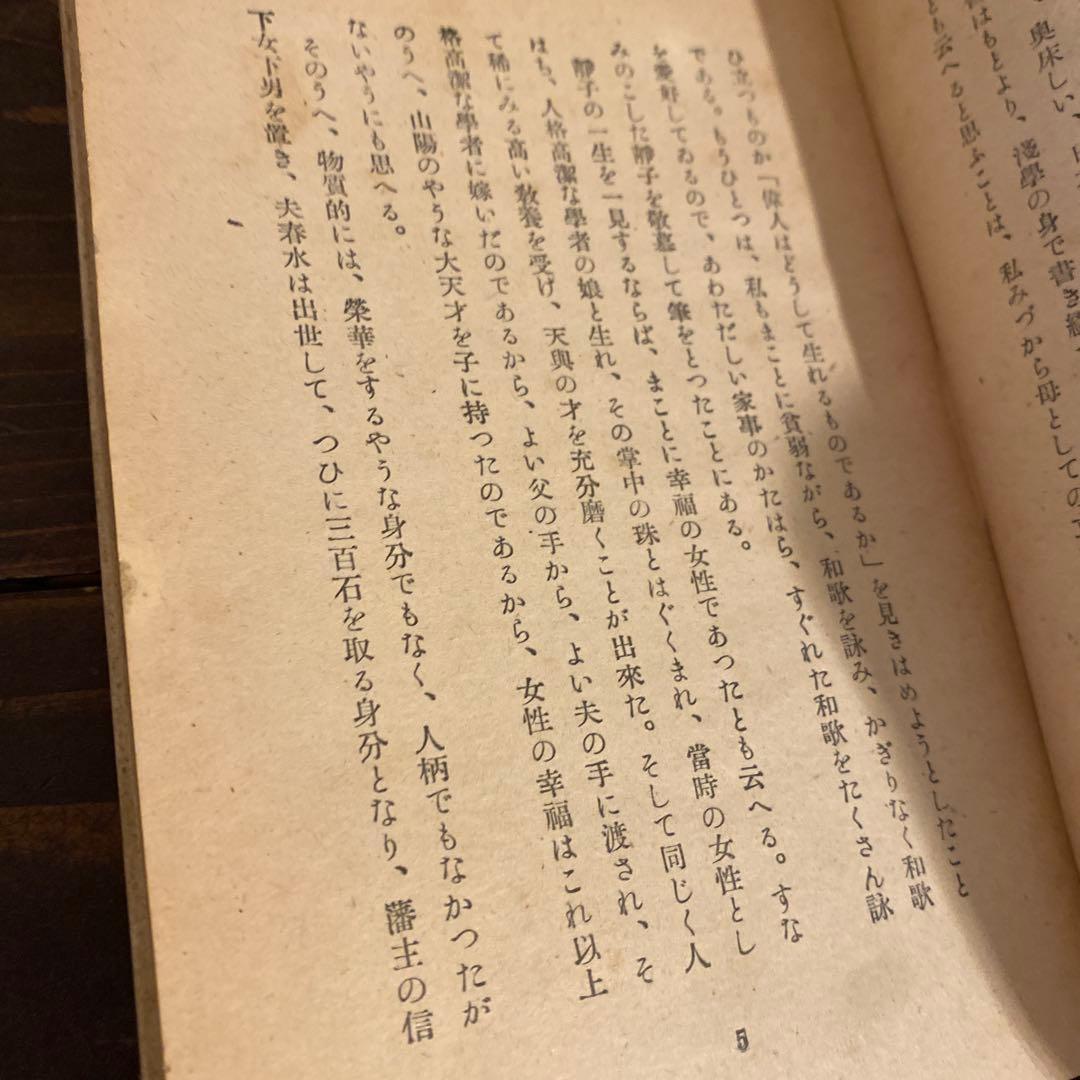 奥床しい、
はもとより、淺學の身で書き
とも云へると思ふことは、私みづから母としての
ひ立つものか「偉人はどうして生れるものであるか」を見きはめようとしたこと
である。もうひとつは、私もまことに貧弱ながら、和歌を詠み、かぎりなく和歌
を愛好してゐるので、あわただしい家事のかたはら、すぐれた和歌をたくさん詠
みのこした靜子を敬慕して筆をとつたことにある。
靜子の一生を一見するならば、まことに幸福の女性であつたとも云へる。すな
はち、人格高潔な學者の娘と生れ、その掌中の珠とはぐくまれ、當時の女性とし
て稀にみる高い敎養を受け、天與の才を充分磨くことが出來た。そして同じく人
格高潔な學者に嫁いだのであるから、よい父の手から、よい夫の手に渡され、そ
のうへ、山陽のやうな大天才を子に持つたのであるから、女性の幸福はこれ以上
ないやうにも思へる。
そのうへ、物質的には、榮華をするやうな身分でもなく、人柄でもなかつたが
下女下男を置き、夫春水は出世して、つひに三百石を取る身分となり、藩主の信
5